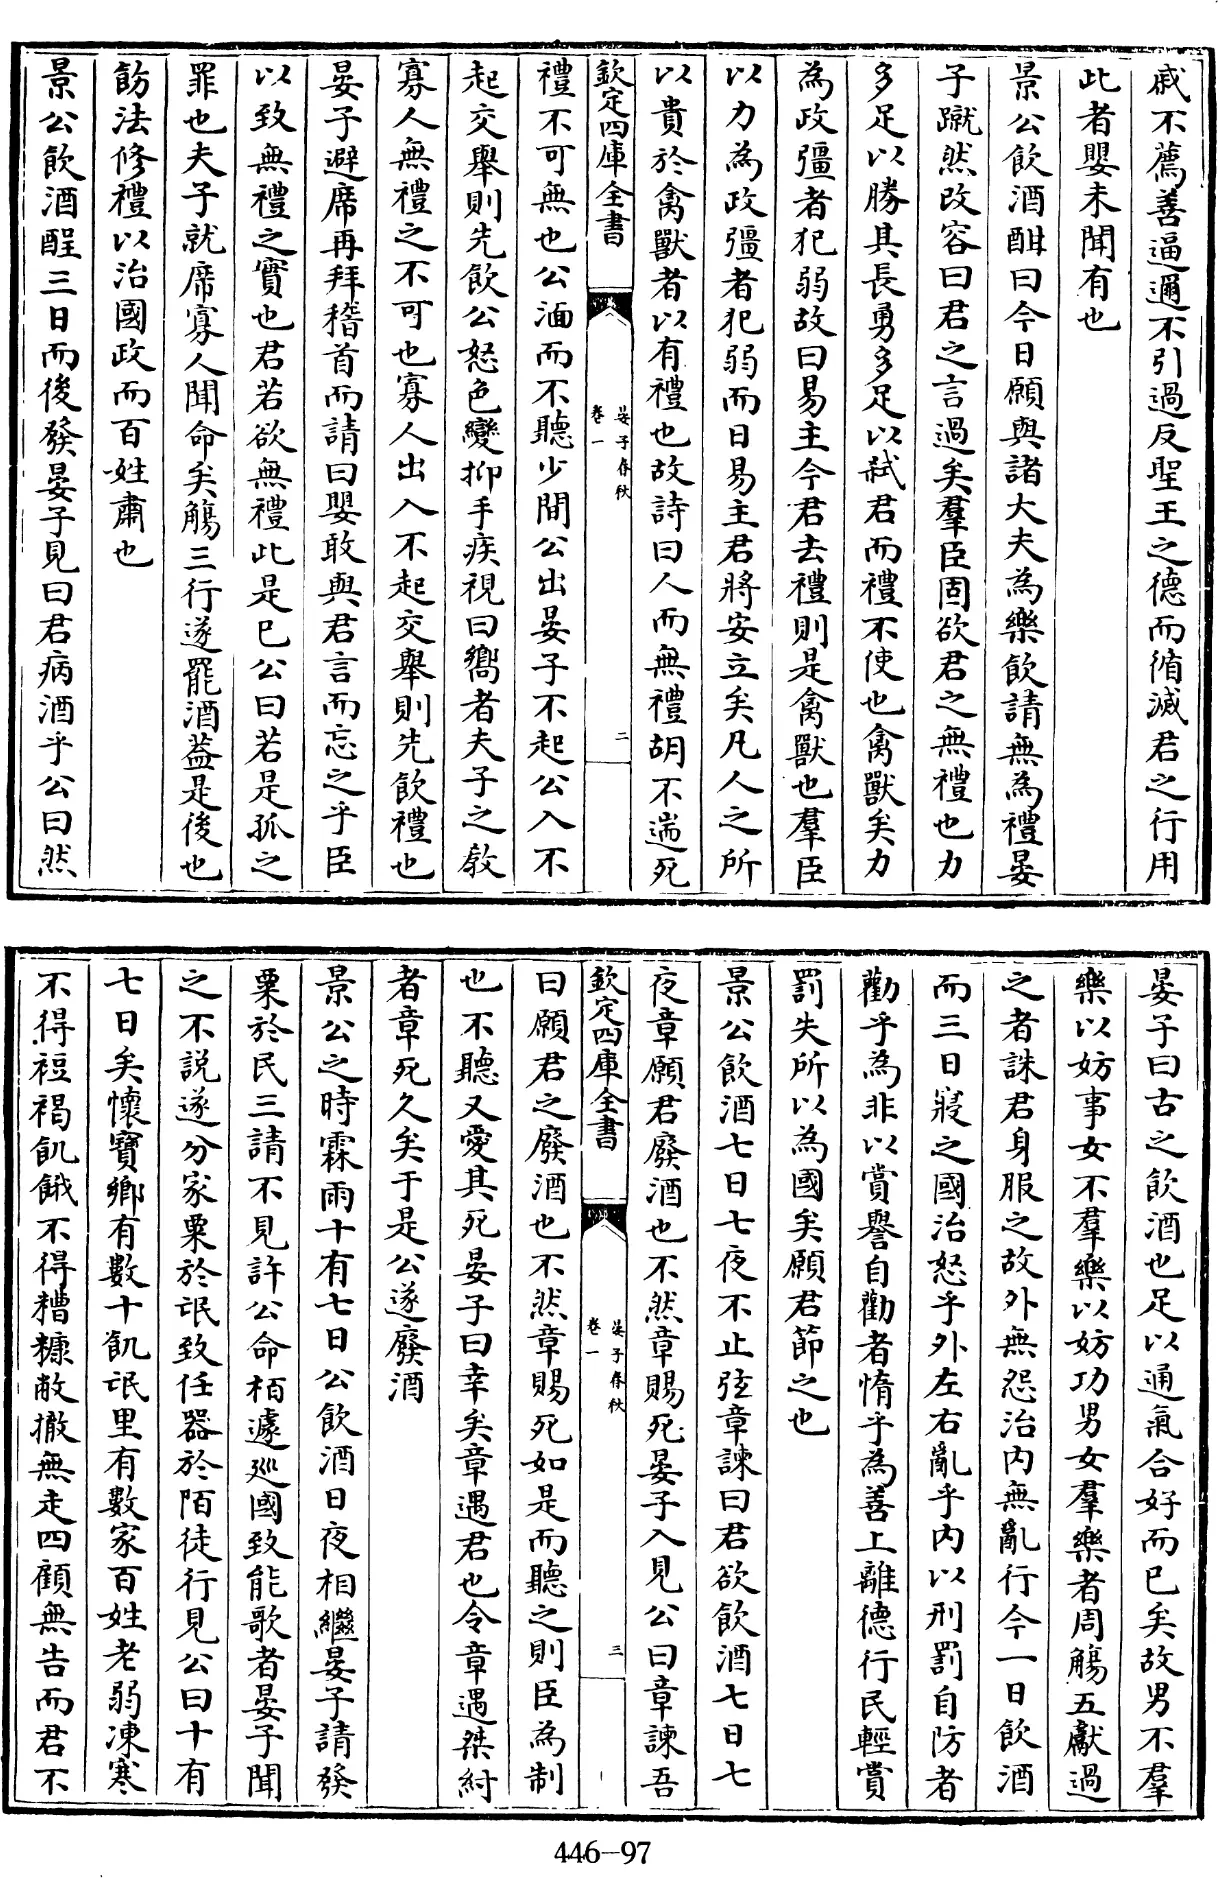 戚不薦善逼邇不引過反聖王之德而循滅君之行用
此者嬰未聞有也
景公飲酒酣曰今日願與諸大夫為樂飲請無為禮晏
子蹴然改容曰君之言過矣羣臣固欲君之無禮也力
多足以勝其長勇多足以弑君而禮不使也禽獸矣力
為政彊者犯弱故曰易主今君去禮則是禽獸也羣臣
以力為政彊者犯弱而日易主君將安立矣凡人之所
以貴於禽獸者以有禮也故詩曰人而無禮胡不遄死
欽定四庫全書
晏子春秋
卷一
二
禮不可無也公湎而不聽少間公出晏子不起公入不
起交舉則先飲公怒色變抑手疾視曰嚮者夫子之敎
寡人無禮之不可也寡人出入不起交舉則先飲禮也
晏子避席再拜稽首而請曰嬰敢與君言而忘之乎臣
以致無禮之實也君若欲無禮此是已公曰若是孤之
罪也夫子就席寡人聞命矣觴三行遂罷酒葢是後也
飭法修禮以治國政而百姓肅也
景公飲酒酲三日而後發晏子見曰君病酒乎公曰然
晏子曰古之飲酒也足以通氣合好而已矣故男不羣
樂以妨事女不羣樂以妨功男女羣樂者周觴五獻過
之者誅君身服之故外無怨治內無亂行今一日飲酒
而三日寢之國治怨乎外左右亂乎內以刑罰自防者
勸乎為非以賞譽自勸者惰乎為善上離德行民輕賞
罰失所以為國矣願君節之也
景公飲酒七日七夜不止弦章諫曰君欲飲酒七日七
夜章願君廢酒也不然章賜死晏子入見公曰章諫吾
欽定四庫全書
晏子春秋
卷一
三
曰願君之廢酒也不然章賜死如是而聽之則臣為制
也不聽又愛其死晏子曰幸矣章遇君也令章遇桀紂
者章死久矣于是公遂廢酒
景公之時霖雨十有七日公飲酒日夜相繼晏子請發
粟於民三請不見許公命栢遽廵國致能歌者晏子聞
之不說遂分家粟於氓致任器於陌徒行見公曰十有
七日矣懷寶鄉有數十飢氓里有數家百姓老弱凍寒
不得裋褐飢餓不得糟糠敝撤無走四顧無告而君不
446-97